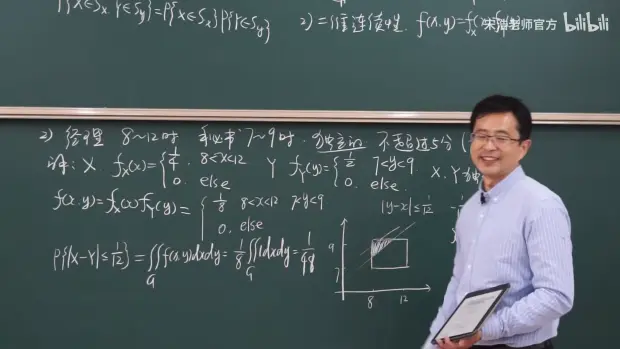 P{X∈Sx, Y∈Sy}=P{X∈Sx}P{Y∈Sy}
2) 二维连续性. f(x,y)=fx(x)
宋浩老师官方 bilibili
2) 经理 8~12时 秘书 7~9时. 独立的 不超过5分
解: X fx(x)={1/4. 8<x<12 Y fY(y)={1/2 7<y<9 X.Y
0. else 0. else.
f(x.y)=fx(x)fY(y)={1/8 8<x<12 7<y<9
0. else
|y-x|≤1/12
P{|X-Y|≤1/12}=∬f(x,y)dxdy=1/8∬1dxdy=1/48
G G
9
7
8 12